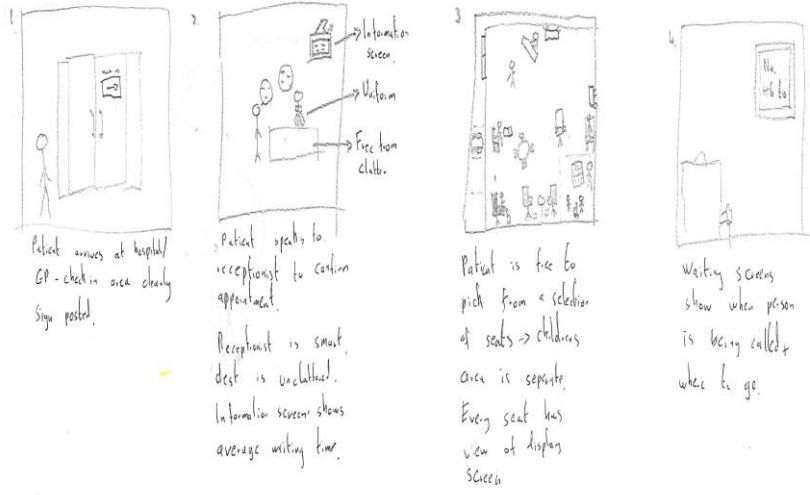 1.
Patient arrives at hospital/
GP - check in area clearly
sign posted.
2.
Information
screen.
Uniform
Free from
clutter.
Patient speaks to
receptionist to confirm
appointment.
Receptionist is smart,
desk is uncluttered.
Information screens shows
average waiting time.
3
Patient is free to
pick from a selection
of seats -> childrens
area is separate.
Every seat has
view of display
screen
4.
No.
46 to
Waiting screens
show when person
is being called +
where to go.